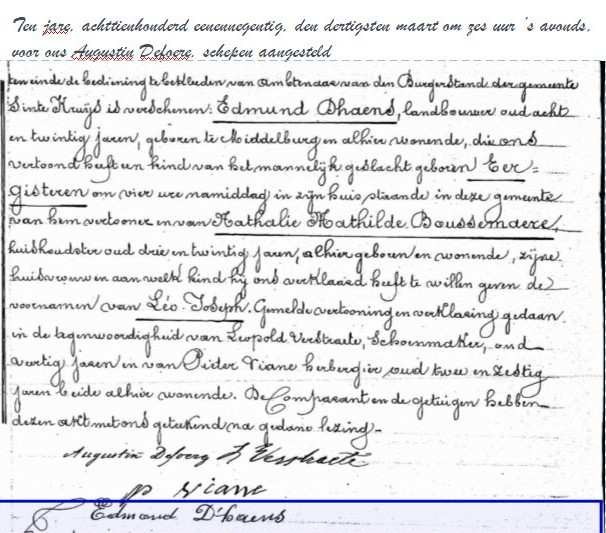 Ten jare, achttienhonderd eenennegentig, den dertigsten maart om zes uur 's avonds,
voor ons Augustin Defoere, schepen aangesteld
ten einde de bediening te bekleeden van ambtenaar van den Burgerstand der gemeente
Sinte Kruijs is verschenen: Edmund Dhaens, landbouwer oud acht
en twintig jaren, geboren te Middelburg en alhier wonende, die ons
vertoond heeft een kind van het mannelijk geslacht geboren Eer=
gisteren om vier ure namiddag in zijn huis staande in deze gemeente
van hem vertooner en van Nathalie Mathilde Boussemaere,
huishoudster oud drie en twintig jaren, alhier geboren en wonende, zijne
huisvrouw en aan welk kind hij ons verklaard heeft te willen geven de
voornamen van Léo-Joseph. Gemelde vertooning en verklaring gedaan
in de tegenwoordigheid van Leopold Verstraete, Schoenmaker, oud
veertig jaren en van Pieter Viane herbergier oud twee en zestig
jaren beide alhier wonende. De Comparant en de getuigen hebben
dezen akt met ons geteekend na gedane lezing-
Augustin Defoere L Verstraete
p Viane
Edmond D'haens